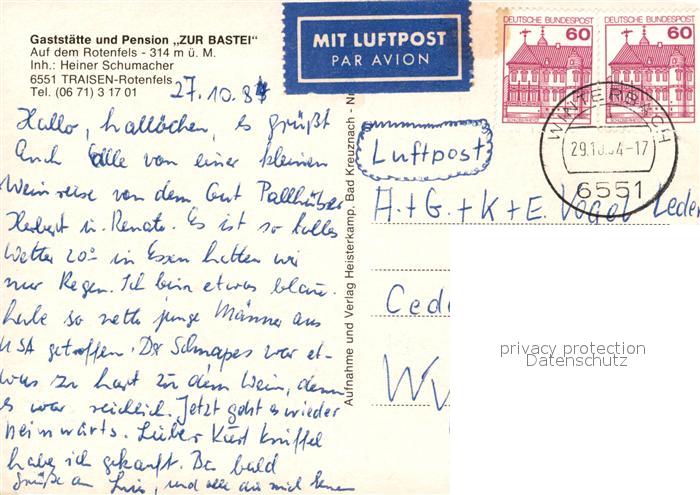 Gaststätte und Pension „ZUR BASTEI"
Auf dem Rotenfels - 314 m ü. M.
Inh.: Heiner Schumacher
6551 TRAISEN-Rotenfels
Tel. (06 71) 3 17 01
MIT LUFTPOST
PAR AVION
DEUTSCHE BUNDESPOST
60
DEUTSCHE BUNDESPOST
60
WINTERBACH
29.10.84-17
6551
27.10.84
Hallo, hallöchen, es grüßt
Auch Alle von einer kleinen
Weinreise von dem Gut
Herbert u. Renate. Es ist so tolles
Wetter 20° in Essen hatten wir
nur Regen. Ich bin etwas blau.
habe so nette junge Männer aus
USA getroffen. Der Schnapes war et-
was zu hart zu dem Wein, denn
es war reichlich. Jetzt geht es wieder
heimwärts. Lieber Kurt Kniffel
habe ich gekauft. Bis bald
Grüße an und alle die mich kennen
Aufnahme und Verlag Heisterkamp, Bad Kreuznach - Nr
Luftpost
A+G.+K+E. Vogel Leder
Cede
Wy
privacy protection
Datenschutz